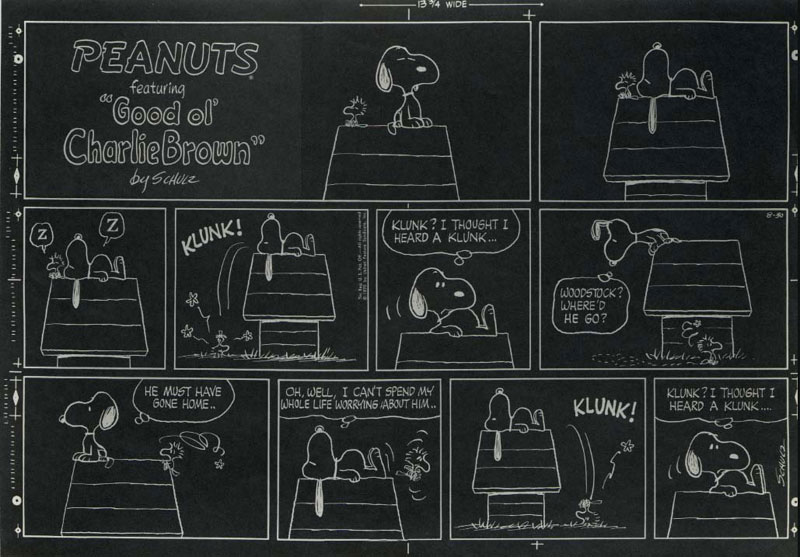 13 3/4 WIDE
PEANUTS®
featuring
"Good ol'
CharlieBrown"
by SCHULZ
Z
Z
KLUNK!
KLUNK? I THOUGHT I
HEARD A KLUNK...
8-30
WOODSTOCK?
WHERE'D
HE GO?
HE MUST HAVE
GONE HOME..
OH, WELL, I CAN'T SPEND MY
WHOLE LIFE WORRYING ABOUT HIM..
KLUNK!
KLUNK? I THOUGHT I
HEARD A KLUNK....
SCHULZ